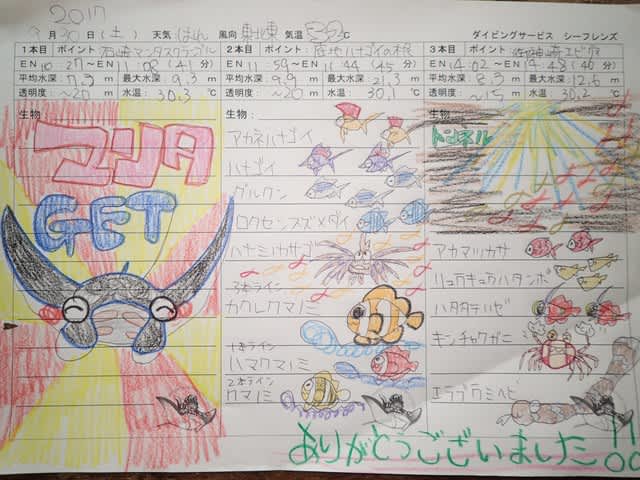 2017
9月30日(土) 天気 はれ 風向 東北東 気温 32℃ ダイビングサービス シーフレンズ
1本目 ポイント 石崎マンタスクランブル
EN 10:27〜EX 11:08(41分)
平均水深: 7.3m 最大水深 9.3m
透明度: 〜20m 水温: 30.3℃
生物
マンタ
GET
2本目 ポイント: 底地ハナゴイの根
EN 11:59〜EX 11:44(45分)
平均水深: 9.9m 最大水深: 21.3m
透明度: 〜20m 水温: 30.1℃
生物:
アカネハナゴイ
ハナゴイ
グルクン
ロクセンスズメダイ
ハナミノカサゴ
3本ライン
カクレクマノミ
1本ライン
ハマクマノミ
2本ライン
クマノミ
3本目 ポイント:
EN 14:02〜EX 14:48(46分)
平均水深: 8.3m 最大水深: 12.6m
透明度: 〜15m 水温: 30.2℃
生物:
トンネル
アカマツカサ
リュウキュウハタンポ
ハタタテハゼ
キンチャクガニ
エラブウミヘビ
ありがとうございました!!